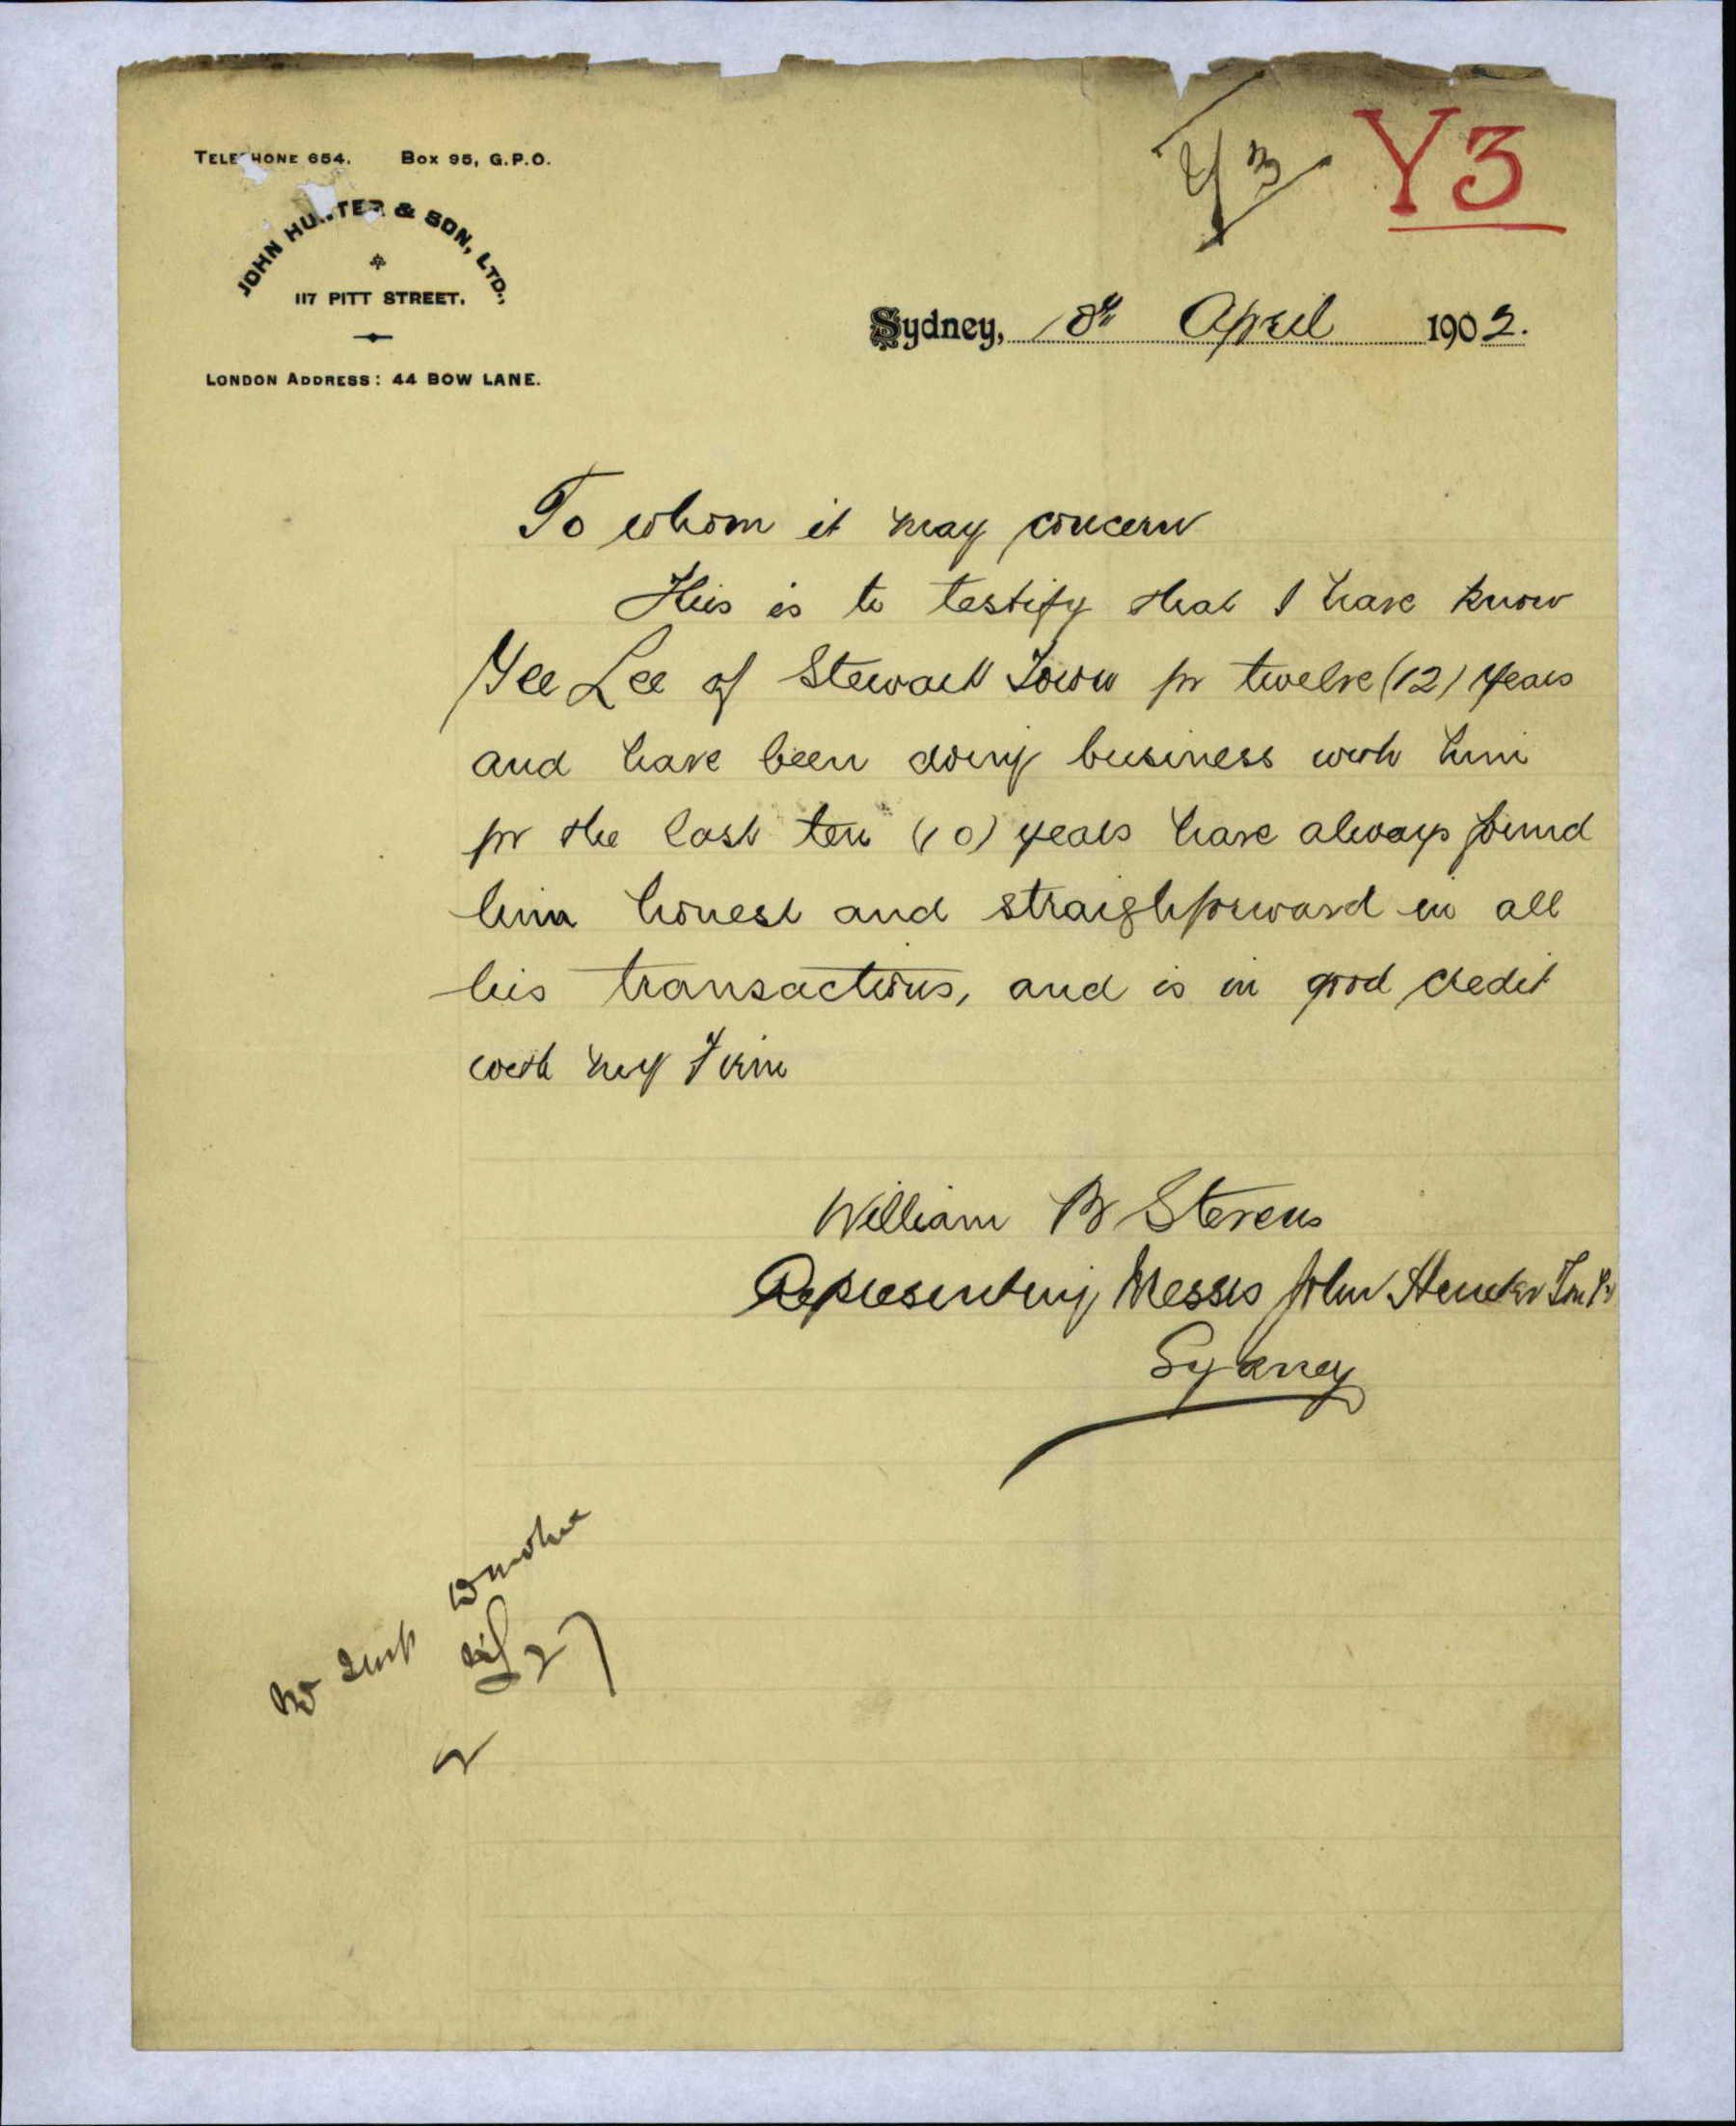 TELEPHONE 654. BOX 95, G.P.O.
JOHN HUNTER & SON, LTD.,
117 PITT STREET.
LONDON ADDRESS: 44 BOW LANE.
Y3
Y3
Sydney, 8th April 1902.
To whom it may concern
This is to testify that I have know
Yee Lee of Stewart Town for twelve (12) years
and have been doing business with him
for the last ten (10) years have always found
him honest and straighforward in all
his transactions, and is in good credit
with my Firm
William B Stevens
Representing Messrs John Hunter Son
Sydney